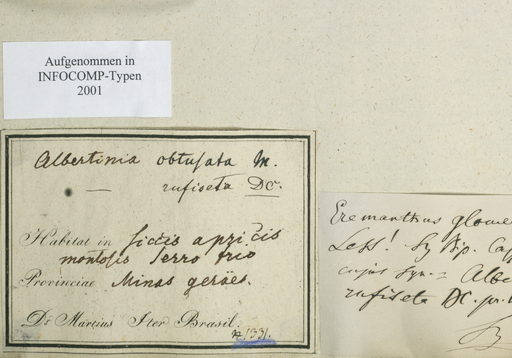 Aufgenommen in
INFOCOMP-Typen
2001
Albertinia obtusata M.
— rufiseta DC.
Habitat in siccis apricis
montosis Serro frio
Provinciae Minas geräes.
Dr Martius Iter Brasil.
1331.
Eremanthus glome
Less!
cujus syn. = Albe
rufiseta DC. pr.